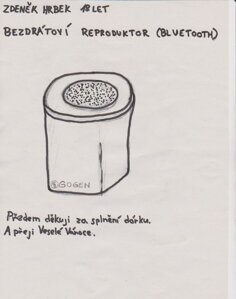 ZDENĚK HRBEK 18 LET
BEZDRÁTOVÍ REPRODUKTOR (BLUETOOTH)
GOGEN
Předem děkuji za splnění dárku.
A přeji Veselé Vánoce.